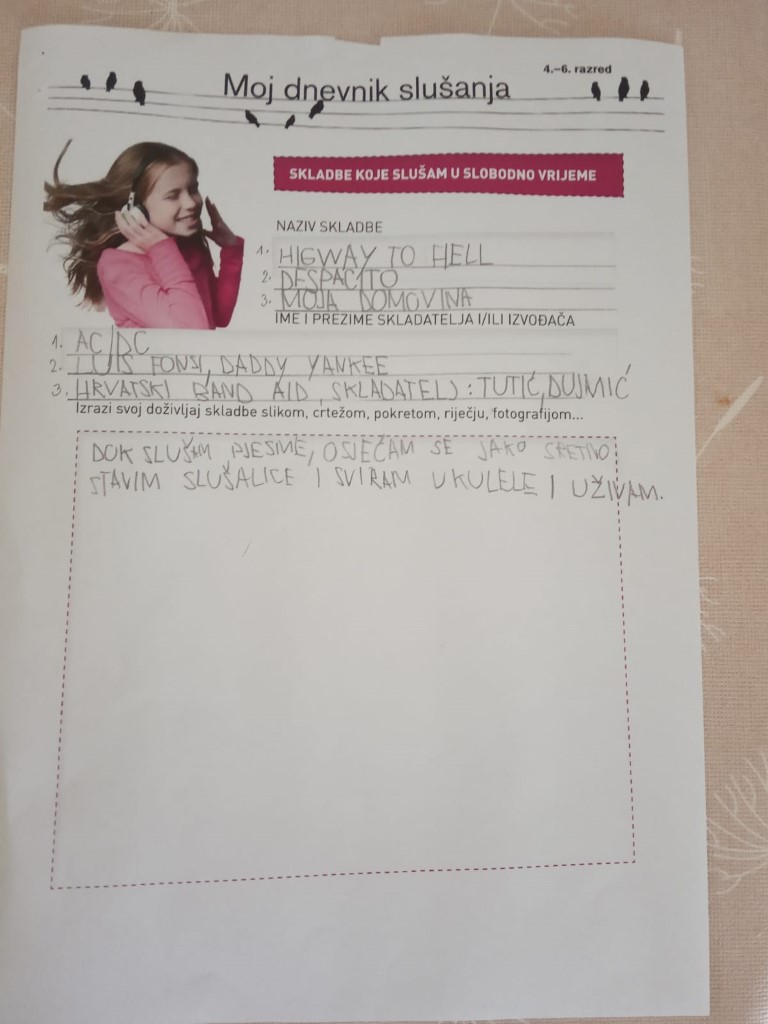 4.–6. razred
Moj dnevnik slušanja
SKLADBE KOJE SLUŠAM U SLOBODNO VRIJEME
NAZIV SKLADBE
1. HIGWAY TO HELL
2. DESPACITO
3. MOJA DOMOVINA
IME I PREZIME SKLADATELJA I/ILI IZVOĐAČA
1. AC/DC
2. LUIS FONSI, DADDY YANKEE
3. HRVATSKI BAND AID, SKLADATELJ: TUTIĆ, DUJMIĆ
Izrazi svoj doživljaj skladbe slikom, crtežom, pokretom, riječju, fotografijom...
DOK SLUŠAM PJESME, OSJEĆAM SE JAKO SRETNO
STAVIM SLUŠALICE I SVIRAM UKULELE I UŽIVAM.